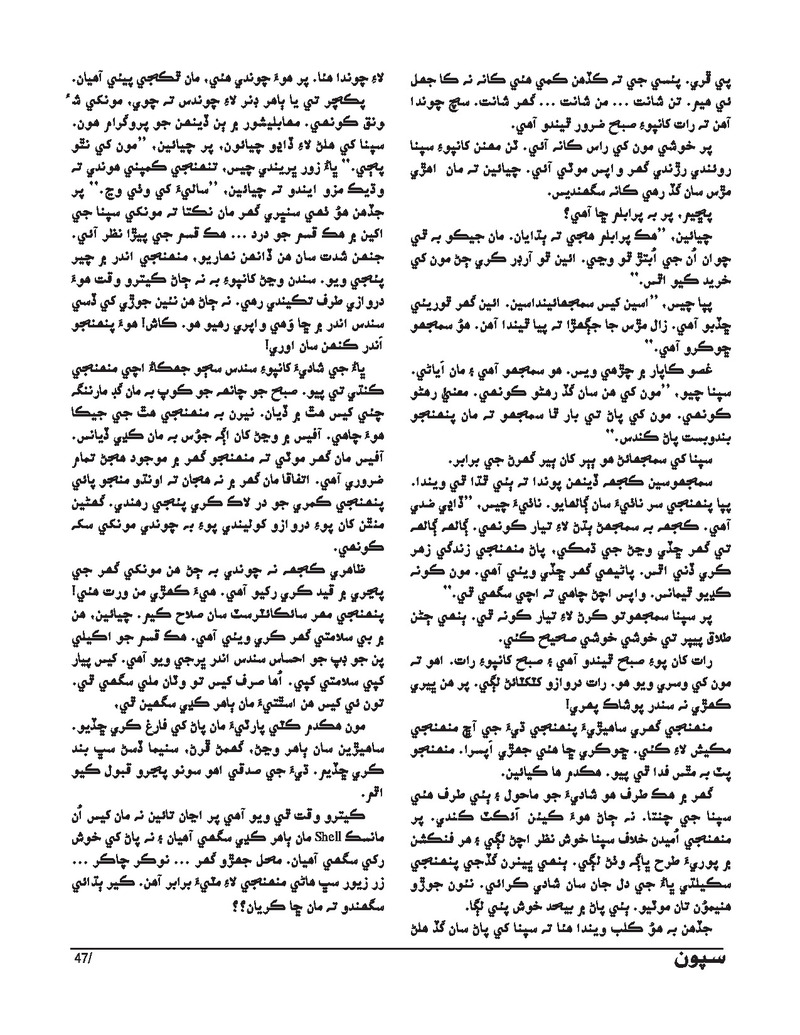 پي ڦري. پئسي جي ته ڪڏهن ڪمي هئي ڪانه نه ڪا جهل
ئي هيم. تن شانت ... من شانت ... گهر شانت. سچ چوندا
آهن ته رات کانپوءِ صبح ضرور ٿيندو آهي.
پر خوشي مون کي راس ڪانه آئي. ٽن مهنن کانپوءِ سپنا
روئندي رڙندي گهر واپس موٽي آئي. چيائين ته مان اهڙي
مڙس سان گڏ رهي ڪانه سگهنديس.
پڇيم، پر به پرابلم ڇا آهي؟
چيائين، ”هڪ پرابلم هجي ته ٻڌايان. مان جيڪو به ٿي
چوان اُن جي اُبتڙ ٿو وڃي. ائين ٿو آرڊر ڪري ڄڻ مون کي
خريد ڪيو اٿس.“
پپا چيس، ”اسين کيس سمجهائينداسين. ائين گهر ٿورئي
ڇڏبو آهي. زال مڙس جا جهڳڙا ته پيا ٿيندا آهن. هوُ سمجهو
ڇوڪرو آهي.“
غصو ڪاپار ۾ چڙهي ويس. هو سمجهو آهي ۽ مان اَياڻي.
سپنا چيو، ”مون کي هن سان گڏ رهڻو ڪونهي. معنيٰ رهڻو
ڪونهي. مون کي پاڻ تي بار ٿا سمجهو ته مان پنهنجو
بندوبست پاڻ ڪندس.“
سپنا کي سمجهائڻ هو ٻٻر کان ٻير گهرڻ جي برابر.
سمجهوسين ڪجهه ڏينهن پوندا ته ٻئي ٿڌا ٿي ويندا.
پپا پنهنجي سر نائيءَ سان ڳالهايو. نائيءَ چيس، ”ڏاڍي ضدي
آهي. ڪجهه به سمجهڻ ٻڌڻ لاءِ تيار ڪونهي. ڳالهه ڳالهه
تي گهر ڇڏي وڃڻ جي ڌمڪي، پاڻ منهنجي زندگي زهر
ڪري ڏني اٿس. پاڻيهي گهر ڇڏي ويئي آهي. مون کونه
ڪڍيو ٿيمانس. واپس اچڻ چاهي ته اچي سگهي ٿي.“
پر سپنا سمجهوتو ڪرڻ لاءِ تيار ڪونه ٿي. ٻنهي ڄڻن
طلاق پيپر تي خوشي خوشي صحيح ڪئي.
رات کان پوءِ صبح ٿيندو آهي ۽ صبح کانپوءِ رات. اهو ته
مون کي وسري ويو هو. رات دروازو کٽکٽائڻ لڳي. پر هن ڀيري
ڪهڙي نه سندر پوشاڪ پهري!
منهنجي گهري ساهيڙيءَ پنهنجي ڌيءَ جي آڇ منهنجي
مڪيش لاءِ ڪئي. ڇوڪري ڇا هئي جهڙي اَپسرا. منهنجو
پٽ به مٿس فدا ٿي پيو. هڪدم ها ڪيائين.
گهر ۾ هڪ طرف هو شاديءَ جو ماحول ۽ ٻئي طرف هئي
سپنا جي چنتا. نه ڄاڻ هوءَ ڪيئن ائڪٽ ڪندي. پر
منهنجي اُميدن خلاف سپنا خوش نظر اچڻ لڳي ۽ هر فنڪشن
۾ پوريءَ طرح ڀاڳه وٺڻ لڳي. ٻنهي ڀينرن گڏجي پنهنجي
سڪيلڌي ڀاءُ جي دل جان سان شادي ڪرائي. نئون جوڙو
هنيموُن تان موٽيو. ٻئي پاڻ ۾ بيحد خوش پئي لڳا.
جڏهن به هوُ ڪلب ويندا هئا ته سپنا کي پاڻ سان گڏ هلڻ
لاءِ چوندا هئا. پر هوءَ چوندي هئي، مان ٿڪجي پيئي آهيان.
پڪچر تي يا ٻاهر ڊنر لاءِ چوندس ته چوي، مونکي شوُ
ونق ڪونهي. مهابليشور ۾ ٻن ڏينهن جو پروگرام هون.
سپنا کي هلڻ لاءِ ڏاڍو چيائون، پر چيائين، ”مون کي نٿو
پڄي.“ ڀاءُ زور ڀريندي چيس، تنهنجي ڪمپني هوندي ته
وڌيڪ مزو ايندو ته چيائين، ”ساليءَ کي وٺي وڃ.“ پر
جڏهن هوُ ٽهي سنڀري گهر مان نڪتا ته مونکي سپنا جي
اکين ۾ هڪ قسم جو درد ... هڪ قسم جي پيڙا نظر آئي.
جنهن شدت سان هن ڏانهن نهاريو، منهنجي اندر ۾ چير
پئجي ويو. سندن وڃڻ کانپوءِ به نه ڄاڻ ڪيترو وقت هوءَ
دروازي طرف تڪيندي رهي. نه ڄاڻ هن نئين جوڙي کي ڏسي
سندس اندر ۾ ڇا وَهي واپري رهيو هو. ڪاش! هوءَ پنهنجو
اَندر ڪنهن سان اوري!
ڀاءُ جي شاديءَ کانپوءِ سندس سڄو جهڪاءُ اچي منهنجي
ڪنڌي تي پيو. صبح جو چانهه جو ڪوپ به مان گڊ مارننگ
چئي کيس هٿ ۾ ڏيان. نيرن به منهنجي هٿ جي جيڪا
هوءَ چاهي. آفيس ۾ وڃڻ کان اڳه جوُس به مان ڪڍي ڏيانس.
آفيس مان گهر موٽي ته منهنجو گهر ۾ موجود هجڻ تمام
ضروري آهي. اتفاقا مان گهر ۾ نه هجان ته اونڌو منجو پائي
پنهنجي ڪمري جو در لاڪ ڪري پئجي رهندي. گهڻين
منٿن کان پوءِ دروازو کوليندي پوءِ به چوندي مونکي سک
ڪونهي.
ظاهري ڪجهه نه چوندي به ڄڻ هن مونکي گهر جي
پڃري ۾ قيد ڪري رکيو آهي. هيءَ ڪهڙي من ورت هئي!
پنهنجي مهر سائڪائٽرسٽ سان صلاح ڪيم. چيائين، هن
۾ بي سلامتي گهر ڪري ويئي آهي. هڪ قسم جو اڪيلي
پن جو ڊپ جو احساس سندس اندر ڀرجي ويو آهي. کيس پيار
کپي سلامتي کپي. اُها صرف کيس تو وٽان ملي سگهي ٿي.
تون ئي کيس هن اسٿتيءَ مان ٻاهر ڪڍي سگهين ٿي،
مون هڪدم ڪٽي پارٽيءَ مان پاڻ کي فارغ ڪري ڇڏيو.
ساهيڙين سان ٻاهر وڃڻ، گهمڻ ڦرڻ، سنيما ڏسڻ سڀ بند
ڪري ڇڏيم. ڌيءَ جي صدقي اهو سونو پڃرو قبول ڪيو
اٿم.
ڪيترو وقت ٿي ويو آهي پر اڃان تائين نه مان کيس اُن
مانسڪ Shell مان ٻاهر ڪڍي سگهي آهيان ۽ نه پاڻ کي خوش
رکي سگهي آهيان. محل جهڙو گهر ... نوڪر چاڪر ...
زر زيور سڀ هاڻي منهنجي لاءِ مٽيءَ برابر آهن. ڪير ٻڌائي
سگهندو ته مان ڇا ڪريان؟؟
سپون
47/